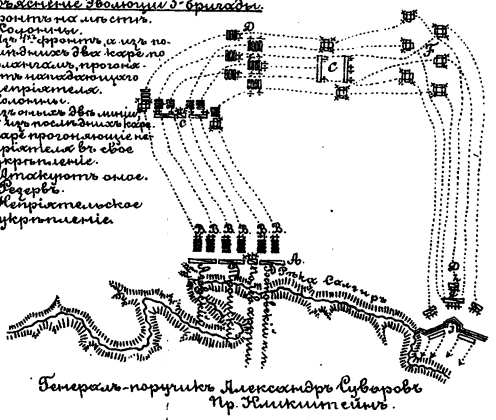 ъясненіе Эволюціи 3-бригады.
фронтъ на мѣстѣ.
Колонны.
Изъ 4хъ фронтъ, а изъ по-
слѣднихъ два каре, по
флангамъ, прогоня-
етъ нападающаго
непріятеля.
Колонны.
Изъ оныхъ двѣ линіи
изъ послѣднихъ каре
каре прогоняющіе не-
пріятеля въ свое
укрѣпленіе.
Атакуютъ оное.
Резервъ.
Непріятельское
укрѣпленіе.
D
C
F
e
B B B B B B
A.
Рѣка Салгиръ
G
J
Генералъ-поручикъ Александръ Суворовъ
Пр. Кликштейнъ.